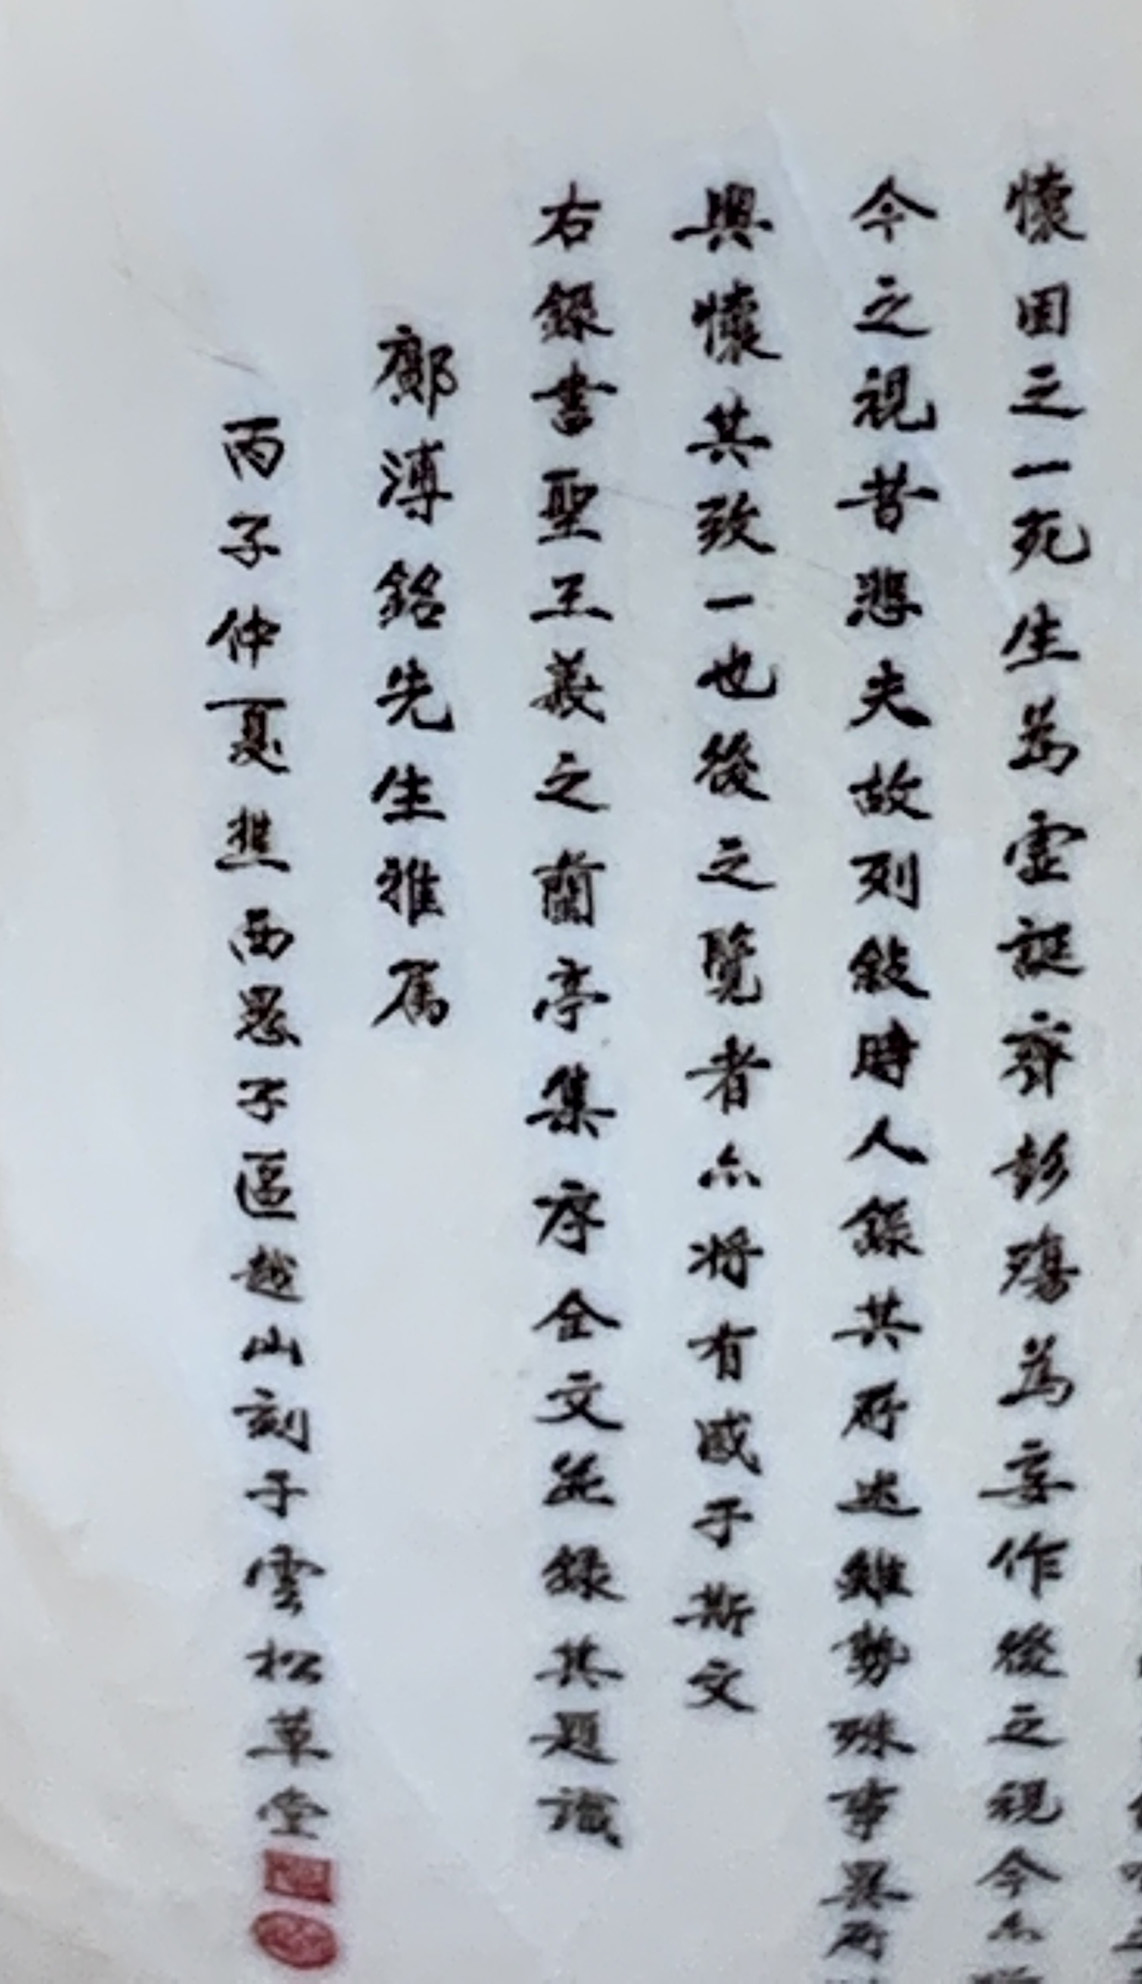 懷固之一死生為虛誕齊彭殤為妄作後之視今亦
今之視昔悲夫故列敍時人錄其所述雖勢殊事異所
興懷其致一也後之覽者亦将有感于斯文
右録書聖王羲之蘭亭集序全文並録其題識
鄺溥銘先生雅属
丙子仲夏樵西愚子區越山刻于雲松草堂